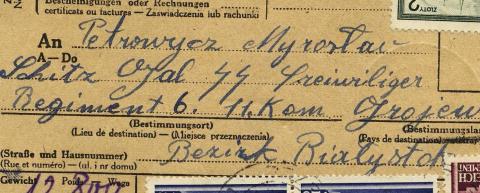 Bescheinigungen oder Rechnungen
certificats ou factures – Zaświadczenia lub rachunki
An Petrowycz Myroslaw
A – Do
Schütz Ofal SS Freiwiliger
Regiment 6. 11. Kom Grajewo
(Bestimmungsort) (Bestimmungsla
(Lieu de destination) – (Miejsce przeznaczenia) (Pays de destination)
(Straße und Hausnummer) Bezirk Bialystok
(Rue et numéro) – (ul. i nr domu)
Gewicht Poids Waga